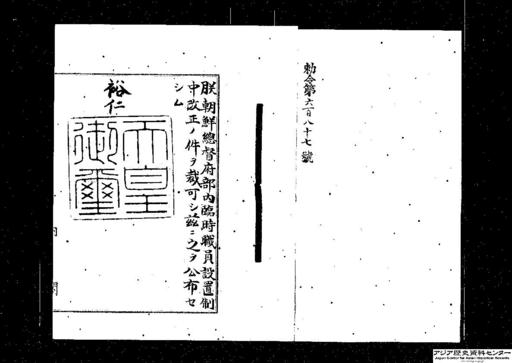 勅令第六百八十七號
朕朝鮮總督府部内臨時職員設置制
中改正ノ件ヲ裁可シ茲ニ之ヲ公布セ
シム
裕仁
天皇
御璽
アジア歴史資料センター
Japan Center for Asian Historical Records